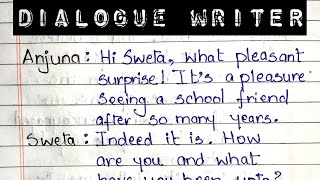 DIALOGUE WRITER
Anjuna: Hi Sweta, what pleasant
surprise! It's a pleasure
seeing a school friend
after so many years.
Sweta: Indeed it is. How
are you and what
have you been upto?